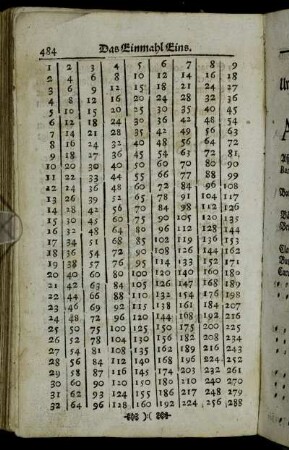 484 Das Einmahl Eins.
1 2 3 4 5 6 7 8 9
2 4 6 8 10 12 14 16 18
3 6 9 12 15 18 21 24 27
4 8 12 16 20 24 28 32 36
5 10 15 20 25 30 35 40 45
6 12 18 24 30 36 42 48 54
7 14 21 28 35 42 49 56 63
8 16 24 32 40 48 56 64 72
9 18 27 36 45 54 63 72 81
10 20 30 40 50 60 70 80 90
11 22 33 44 55 66 77 88 99
12 24 36 48 60 72 84 96 108
13 26 39 52 65 78 91 104 117
14 28 42 56 70 84 98 112 126
15 30 45 60 75 90 105 120 135
16 32 48 64 80 96 112 128 144
17 34 51 68 85 102 119 136 153
18 36 54 72 90 108 126 144 162
19 38 57 76 95 114 133 152 171
20 40 60 80 100 120 140 160 180
21 42 63 84 105 126 147 168 189
22 44 66 88 110 132 154 176 198
23 46 69 92 115 138 161 184 207
24 48 72 96 120 144 168 192 216
25 50 75 100 125 150 175 200 225
26 52 78 104 130 156 182 208 234
27 54 81 108 135 162 189 216 243
28 56 84 112 140 168 196 224 252
29 58 87 116 145 174 203 232 261
30 60 90 120 150 180 210 240 270
31 62 93 124 155 186 217 248 279
32 64 96 128 160 192 224 256 288